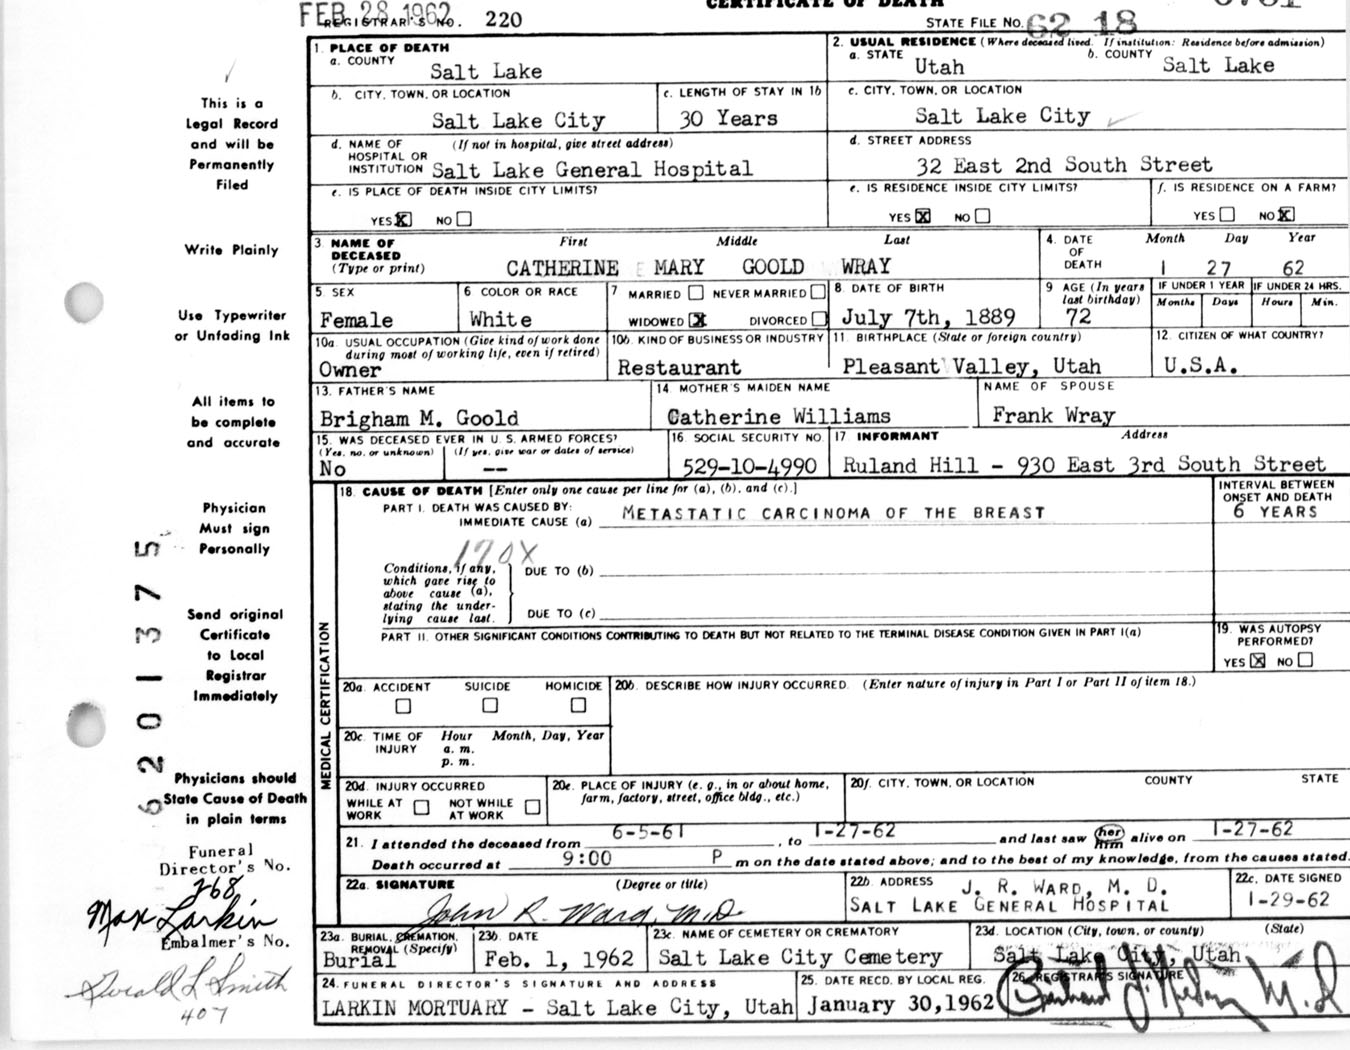 FEB 28 1962
REGISTRAR'S NO. 220
CERTIFICATE OF DEATH
STATE FILE NO. 62 18
This is a
Legal Record
and will be
Permanently
Filed
Write Plainly
Use Typewriter
or Unfading Ink
All items to
be complete
and accurate
Physician
Must sign
Personally
Send original
Certificate
to Local
Registrar
Immediately
Physicians should
State Cause of Death
in plain terms
Funeral
Director's No.
268
Max Larkin
Embalmer's No.
Gerald L Smith
407
6201375
1. PLACE OF DEATH
a. COUNTY Salt Lake
2. USUAL RESIDENCE (Where deceased lived. If institution: Residence before admission)
a. STATE Utah b. COUNTY Salt Lake
b. CITY, TOWN, OR LOCATION Salt Lake City
c. LENGTH OF STAY IN 1b 30 Years
c. CITY, TOWN, OR LOCATION Salt Lake City
d. NAME OF HOSPITAL OR INSTITUTION (If not in hospital, give street address) Salt Lake General Hospital
d. STREET ADDRESS 32 East 2nd South Street
e. IS PLACE OF DEATH INSIDE CITY LIMITS?
YES X NO
e. IS RESIDENCE INSIDE CITY LIMITS?
YES X NO
f. IS RESIDENCE ON A FARM?
YES NO X
3. NAME OF DECEASED (Type or print) First Middle Last
CATHERINE MARY GOOLD WRAY
4. DATE OF DEATH Month Day Year
1 27 62
5. SEX Female
6 COLOR OR RACE White
7 MARRIED NEVER MARRIED
WIDOWED X DIVORCED
8. DATE OF BIRTH July 7th, 1889
9 AGE (In years last birthday) 72
IF UNDER 1 YEAR Months Days
IF UNDER 24 HRS. Hours Min.
10a. USUAL OCCUPATION (Give kind of work done during most of working life, even if retired) Owner
10b. KIND OF BUSINESS OR INDUSTRY Restaurant
11. BIRTHPLACE (State or foreign country) Pleasant Valley, Utah
12. CITIZEN OF WHAT COUNTRY? U.S.A.
13. FATHER'S NAME Brigham M. Goold
14 MOTHER'S MAIDEN NAME Catherine Williams
NAME OF SPOUSE Frank Wray
15. WAS DECEASED EVER IN U. S. ARMED FORCES?
(Yes, no, or unknown) (If yes, give war or dates of service)
No --
16. SOCIAL SECURITY NO. 529-10-4990
17. INFORMANT Address
Ruland Hill - 930 East 3rd South Street
MEDICAL CERTIFICATION
18. CAUSE OF DEATH [Enter only one cause per line for (a), (b), and (c).]
INTERVAL BETWEEN ONSET AND DEATH
PART I. DEATH WAS CAUSED BY:
IMMEDIATE CAUSE (a) METASTATIC CARCINOMA OF THE BREAST 6 YEARS
170X
Conditions, if any, which gave rise to above cause (a), stating the underlying cause last.
DUE TO (b)
DUE TO (c)
PART II. OTHER SIGNIFICANT CONDITIONS CONTRIBUTING TO DEATH BUT NOT RELATED TO THE TERMINAL DISEASE CONDITION GIVEN IN PART I(a)
19. WAS AUTOPSY PERFORMED?
YES X NO
20a. ACCIDENT SUICIDE HOMICIDE
20b. DESCRIBE HOW INJURY OCCURRED. (Enter nature of injury in Part I or Part II of item 18.)
20c. TIME OF INJURY Hour Month, Day, Year
a. m.
p. m.
20d. INJURY OCCURRED
WHILE AT WORK NOT WHILE AT WORK
20e. PLACE OF INJURY (e. g., in or about home, farm, factory, street, office bldg., etc.)
20f. CITY, TOWN, OR LOCATION COUNTY STATE
21. I attended the deceased from 6-5-61, to 1-27-62 and last saw her him alive on 1-27-62
Death occurred at 9:00 P m on the date stated above; and to the best of my knowledge, from the causes stated.
22a. SIGNATURE (Degree or title)
John R. Ward, M.D.
22b. ADDRESS J. R. WARD, M. D.
SALT LAKE GENERAL HOSPITAL
22c. DATE SIGNED 1-29-62
23a. BURIAL, CREMATION, REMOVAL (Specify) Burial
23b. DATE Feb. 1, 1962
23c. NAME OF CEMETERY OR CREMATORY Salt Lake City Cemetery
23d. LOCATION (City, town, or county) (State)
Salt Lake City, Utah
24. FUNERAL DIRECTOR'S SIGNATURE AND ADDRESS
LARKIN MORTUARY - Salt Lake City, Utah
25. DATE RECD. BY LOCAL REG. January 30,1962
26. REGISTRAR'S SIGNATURE